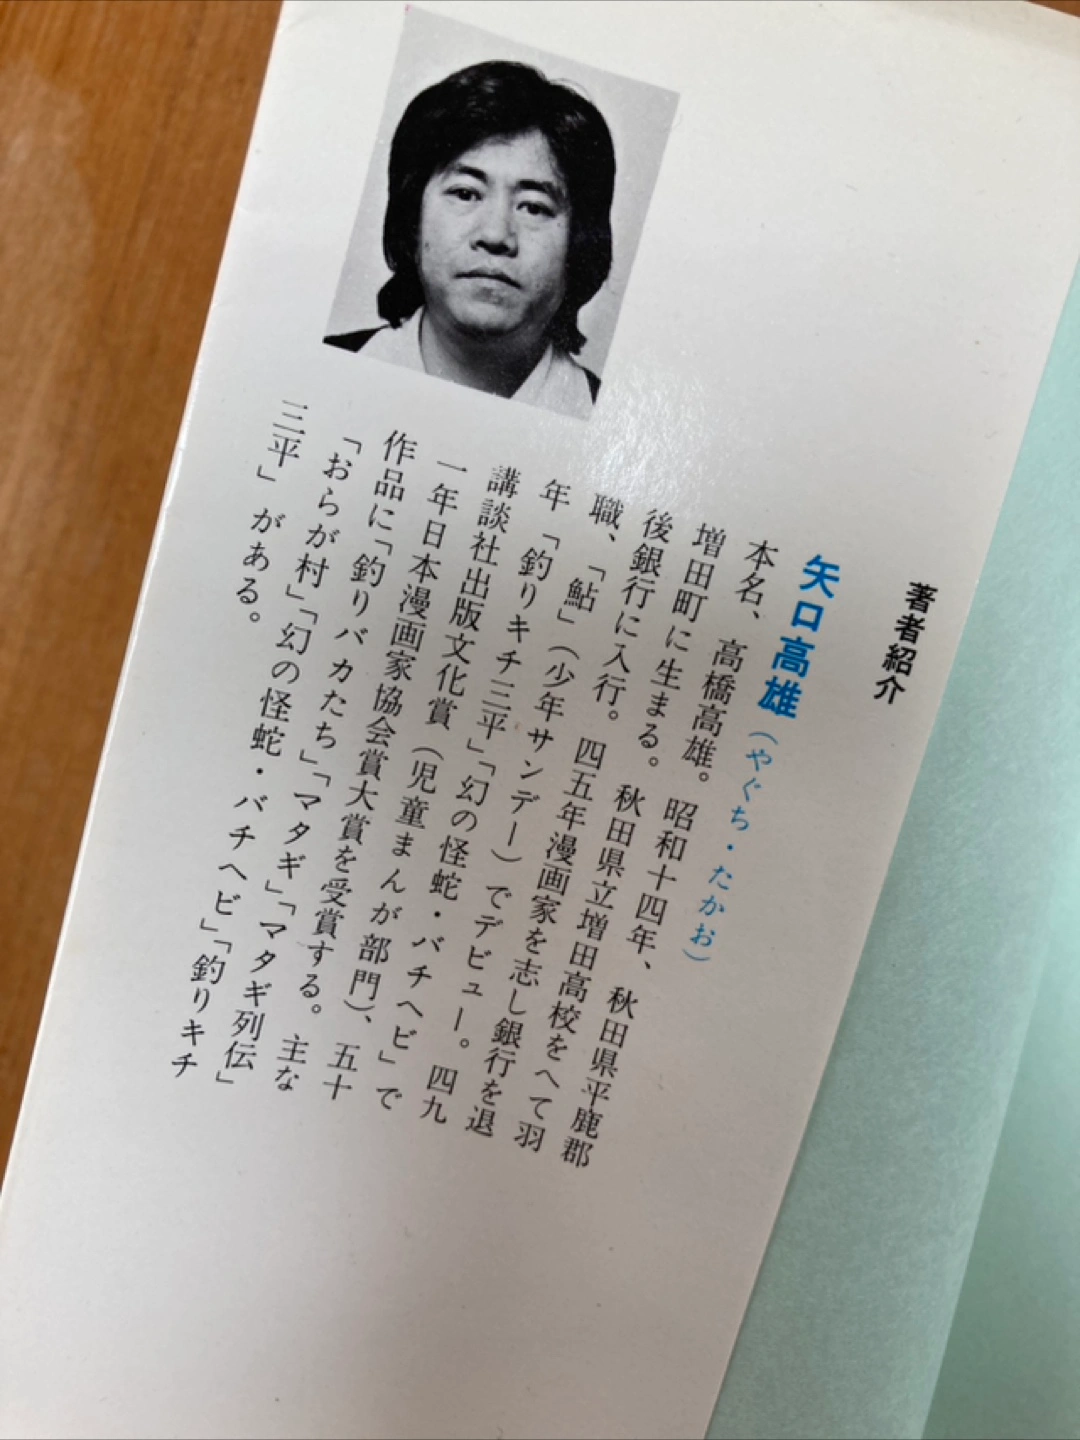 著者紹介
矢口高雄(やぐち・たかお)
本名、高橋高雄。昭和十四年、秋田県平鹿郡
増田町に生まる。秋田県立増田高校をへて羽
後銀行に入行。四五年漫画家を志し銀行を退
職、「鮎」(少年サンデー)でデビュー。四九
年「釣りキチ三平」「幻の怪蛇・バチヘビ」で
講談社出版文化賞(児童まんが部門)、五十
一年日本漫画家協会賞大賞を受賞する。主な
作品に「釣りバカたち」「マタギ」「マタギ列伝」
「おらが村」「幻の怪蛇・バチヘビ」「釣りキチ
三平」がある。